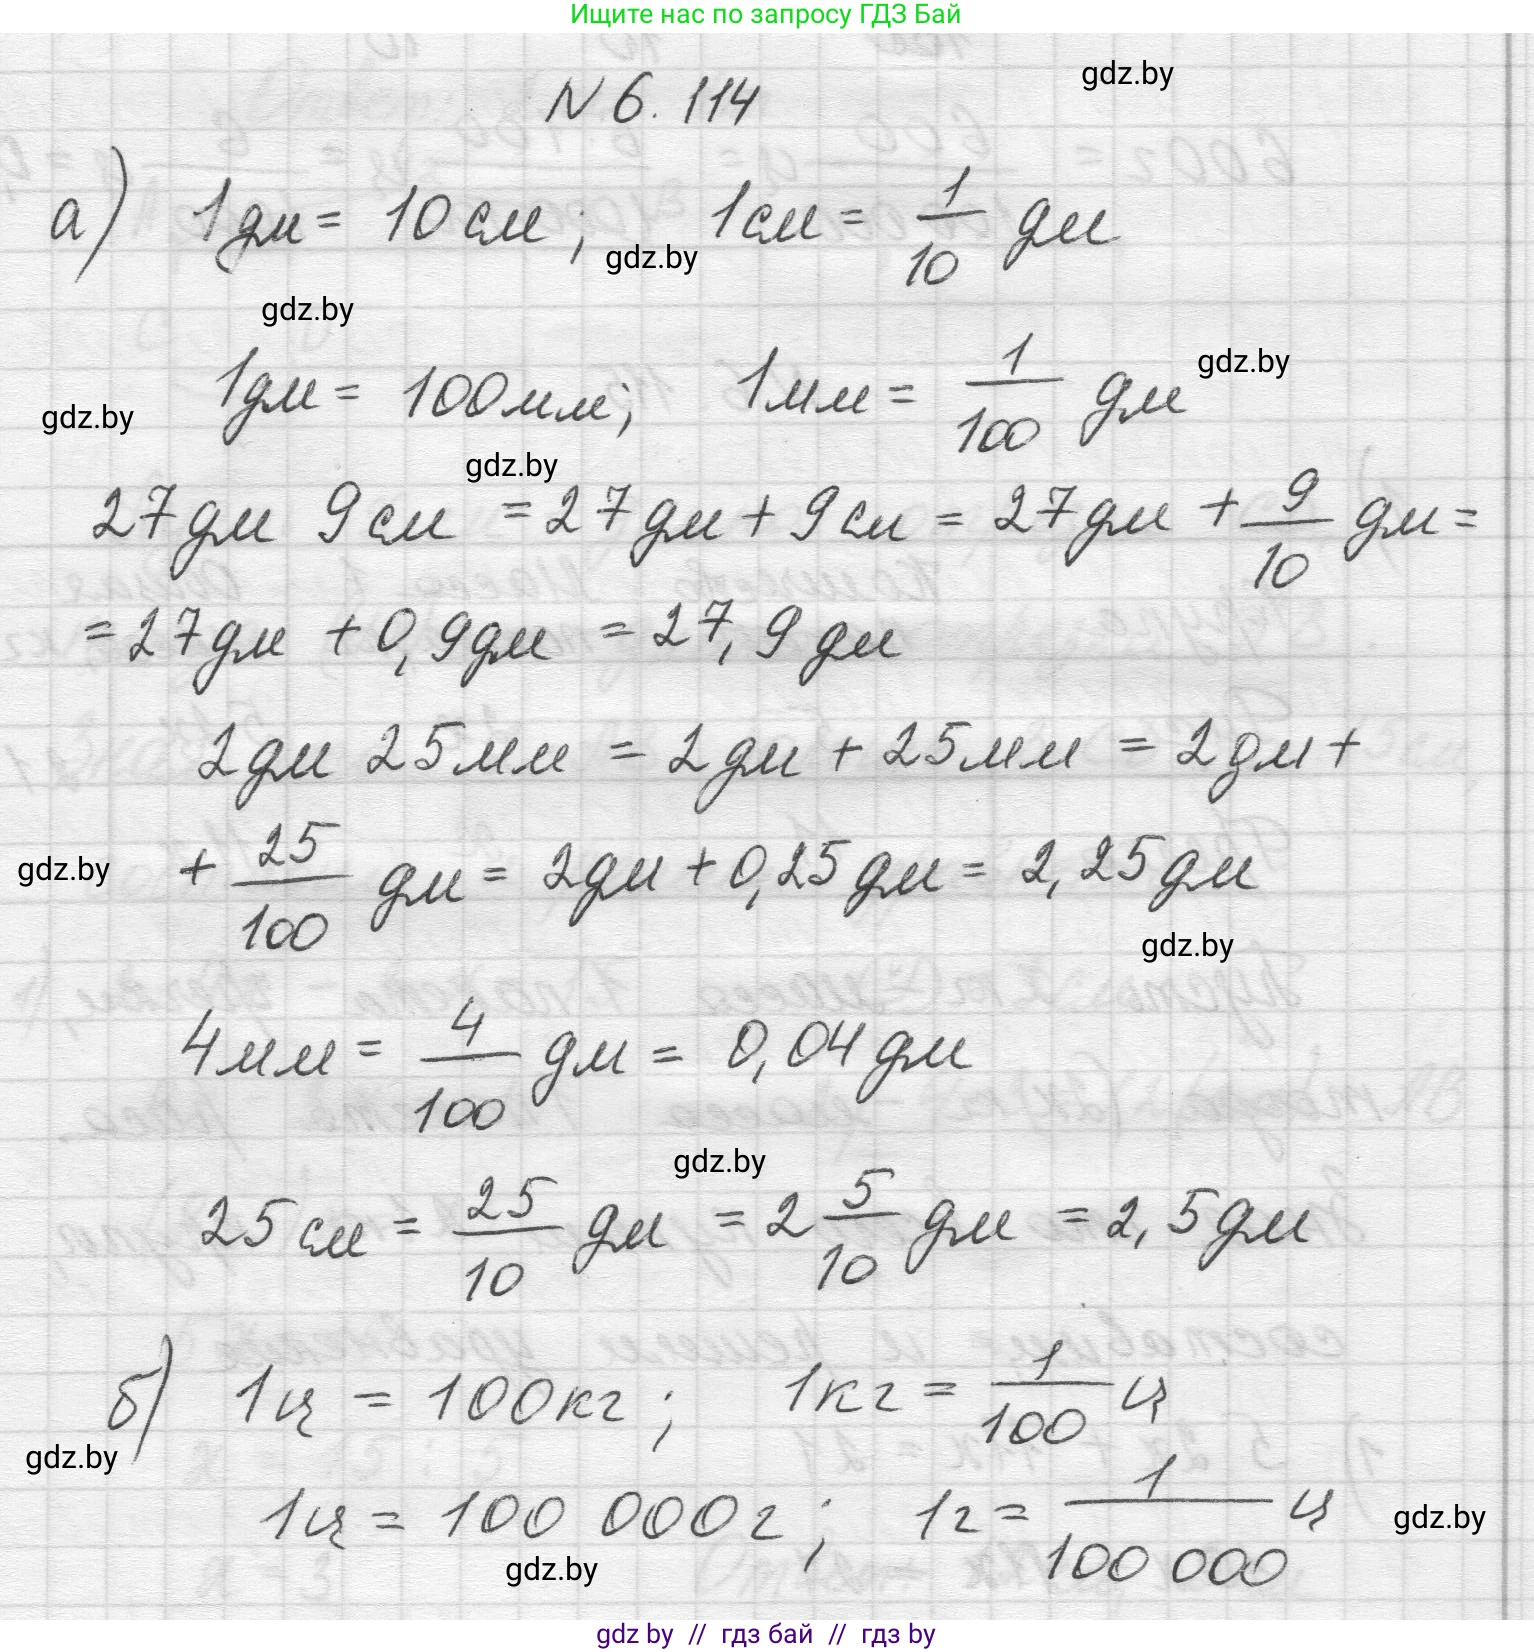 Ищите нас по запросу ГДЗ Бай
gdz.by
N 6.114
а) 1дм = 10 см; 1см = 1/10 дм
gdz.by
gdz.by
1дм = 100мм; 1мм = 1/100 дм
gdz.by
gdz.by
gdz.by
27дм 9см = 27дм + 9см = 27дм + 9/10 дм =
= 27дм + 0,9дм = 27,9 дм
2дм 25мм = 2дм + 25мм = 2дм +
+ 25/100 дм = 2дм + 0,25дм = 2,25дм
gdz.by
gdz.by
4мм = 4/100 дм = 0,04дм
gdz.by
25см = 25/10 дм = 2 5/10 дм = 2,5дм
б) 1ц = 100кг; 1кг = 1/100 ц
gdz.by
1ц = 100 000г; 1г = 1/100 000 ц
gdz.by
gdz.by
gdz by // гдз бай // гдз by